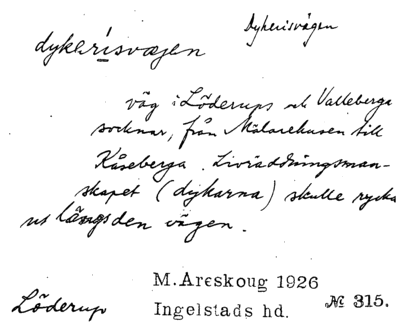 Dykerisvägen
dykerisvægen
väg i Löderups och Valleberga
socknar, från Mälarehusen till
Kåseberga. Livräddningsman-
skapet (dykarna) skulle rycka
ut längs den vägen.
M. Areskoug 1926
Löderup
Ingelstads hd.
№ 315.